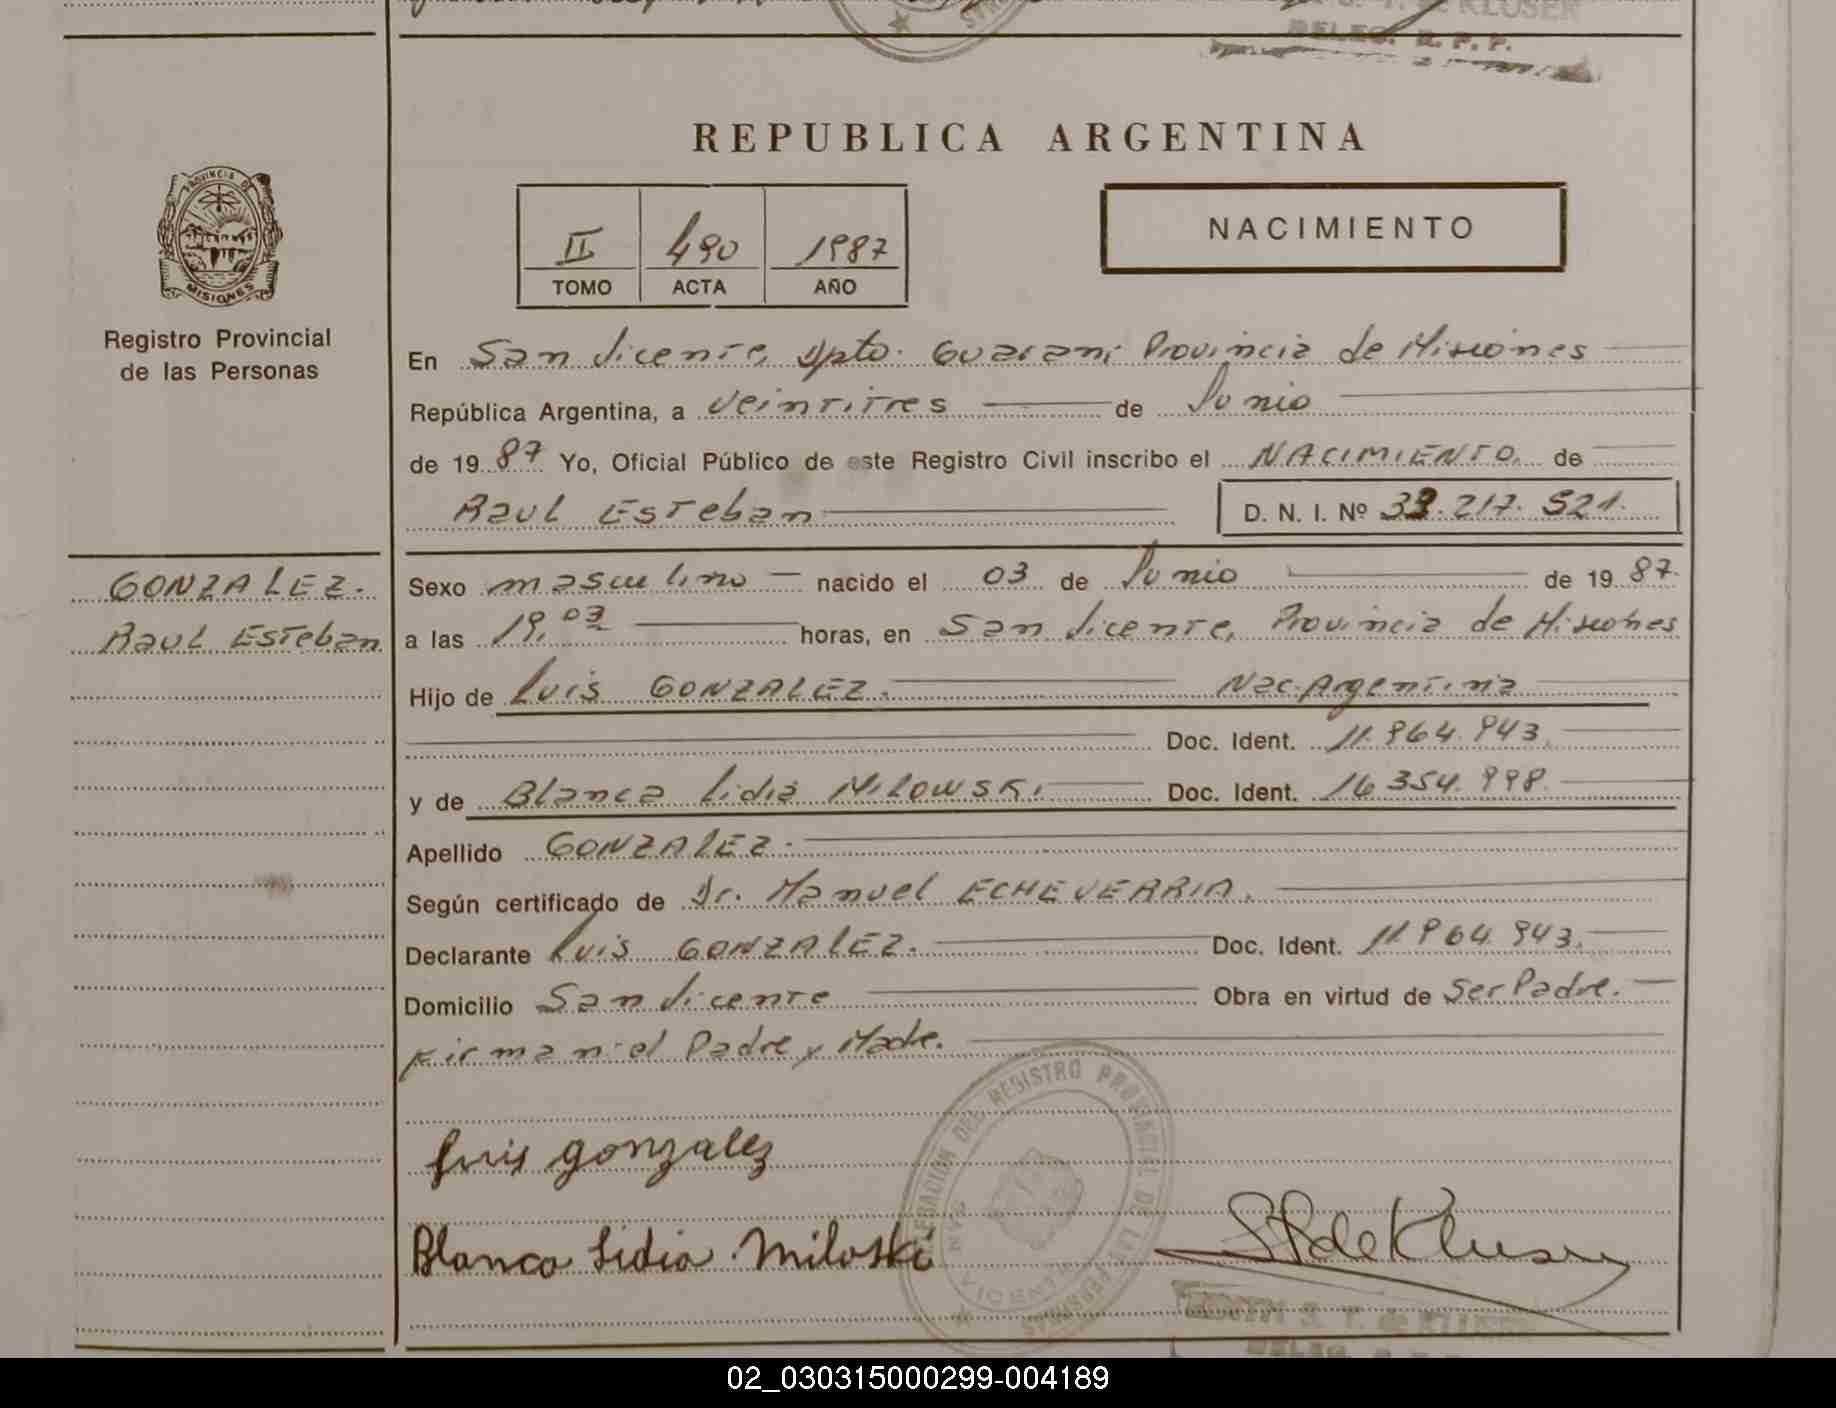 DELEG. R. P. P.
REPUBLICA ARGENTINA
PROVINCIA DE
MISIONES
Registro Provincial
de las Personas
II 490 1987
TOMO ACTA AÑO
NACIMIENTO
En San Vicente, Dpto. Guarani Provincia de Misiones
República Argentina, a veintitres de Junio
de 1987 Yo, Oficial Público de este Registro Civil inscribo el NACIMIENTO de
Raul Esteban D. N. I. Nº 33.217.521.
GONZALEZ.
Raul Esteban
Sexo masculino nacido el 03 de Junio de 1987.
a las 19,03 horas, en San Vicente, Provincia de Misiones
Hijo de Luis GONZALEZ. Nac. Argentina
Doc. Ident. 11.964.943.
y de Blanca Lidia MILOWSKI Doc. Ident. 16.354.998.
Apellido GONZALEZ.
Según certificado de Dr. Manuel ECHEVERRIA.
Declarante Luis GONZALEZ. Doc. Ident. 11.964.943.
Domicilio San Vicente Obra en virtud de Ser Padre.
Firman el Padre y Madre.
Luis gonzalez
Blanca Lidia Miloski
DELEGACION DEL REGISTRO PROVINCIAL DE LAS PERSONAS
SAN VICENTE
S. T. de KLUSER
02_030315000299-004189